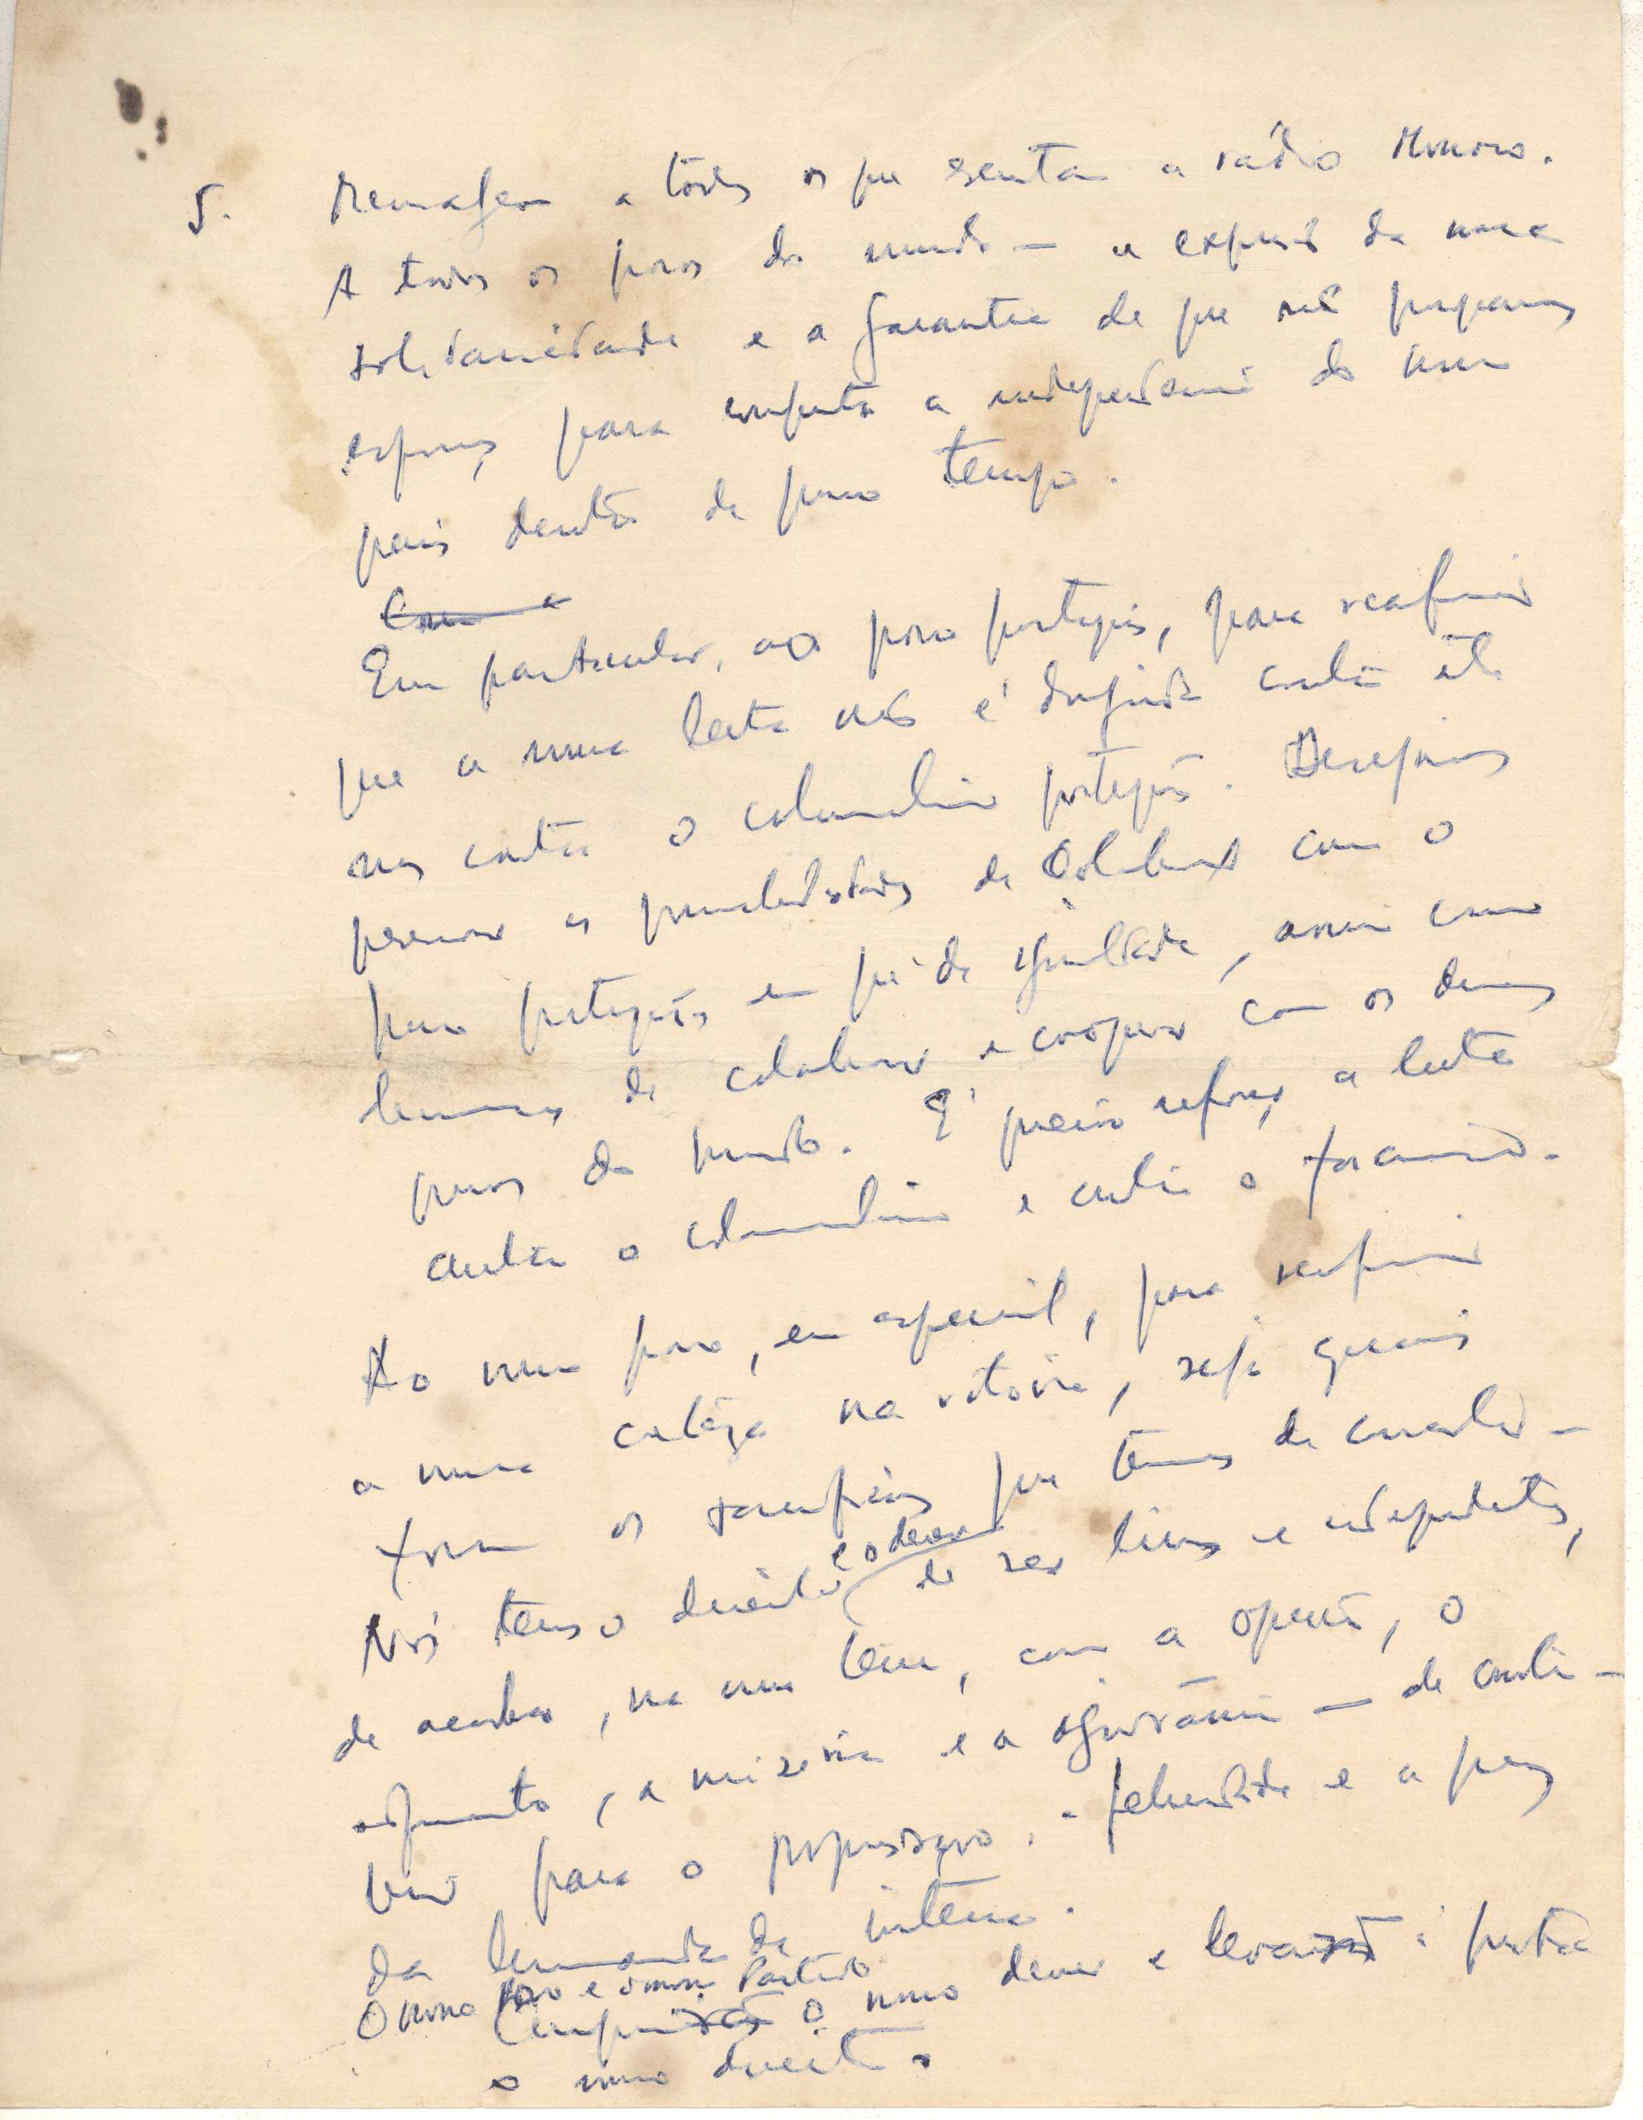 5. Mensagem a todos os que escutam a rádio Moscovo.
A todos os povos do mundo — a expressão da nossa
solidariedade e a garantia de que não pouparemos
esforços para conquistar a independência do nosso
país dentro de pouco tempo.
Com a
Em particular, ao povo português, para reafirmar
que a nossa luta não é dirigida contra ele
mas contra o colonialismo português. Desejamos
preservar as possibilidades de colaborar com o
povo português em pé de igualdade, assim como
de colaborar e cooperar com os demais
povos do mundo. É preciso reforçar a luta
contra o colonialismo e contra o fascismo.
Ao nosso povo, em especial, para reafirmar
a nossa certeza na vitória, seja quais
forem os sacrifícios que temos de consentir —
Nós temos o direito e o dever de ser livres e independentes,
de acabar, na nossa terra, com a opressão, o
sofrimento, a miséria e a ignorância — de contri-
buir para o progresso, a felicidade e a paz
da humanidade inteira.
O nosso Povo e o nosso Partido
o nosso dever e à prática
o nosso direito.